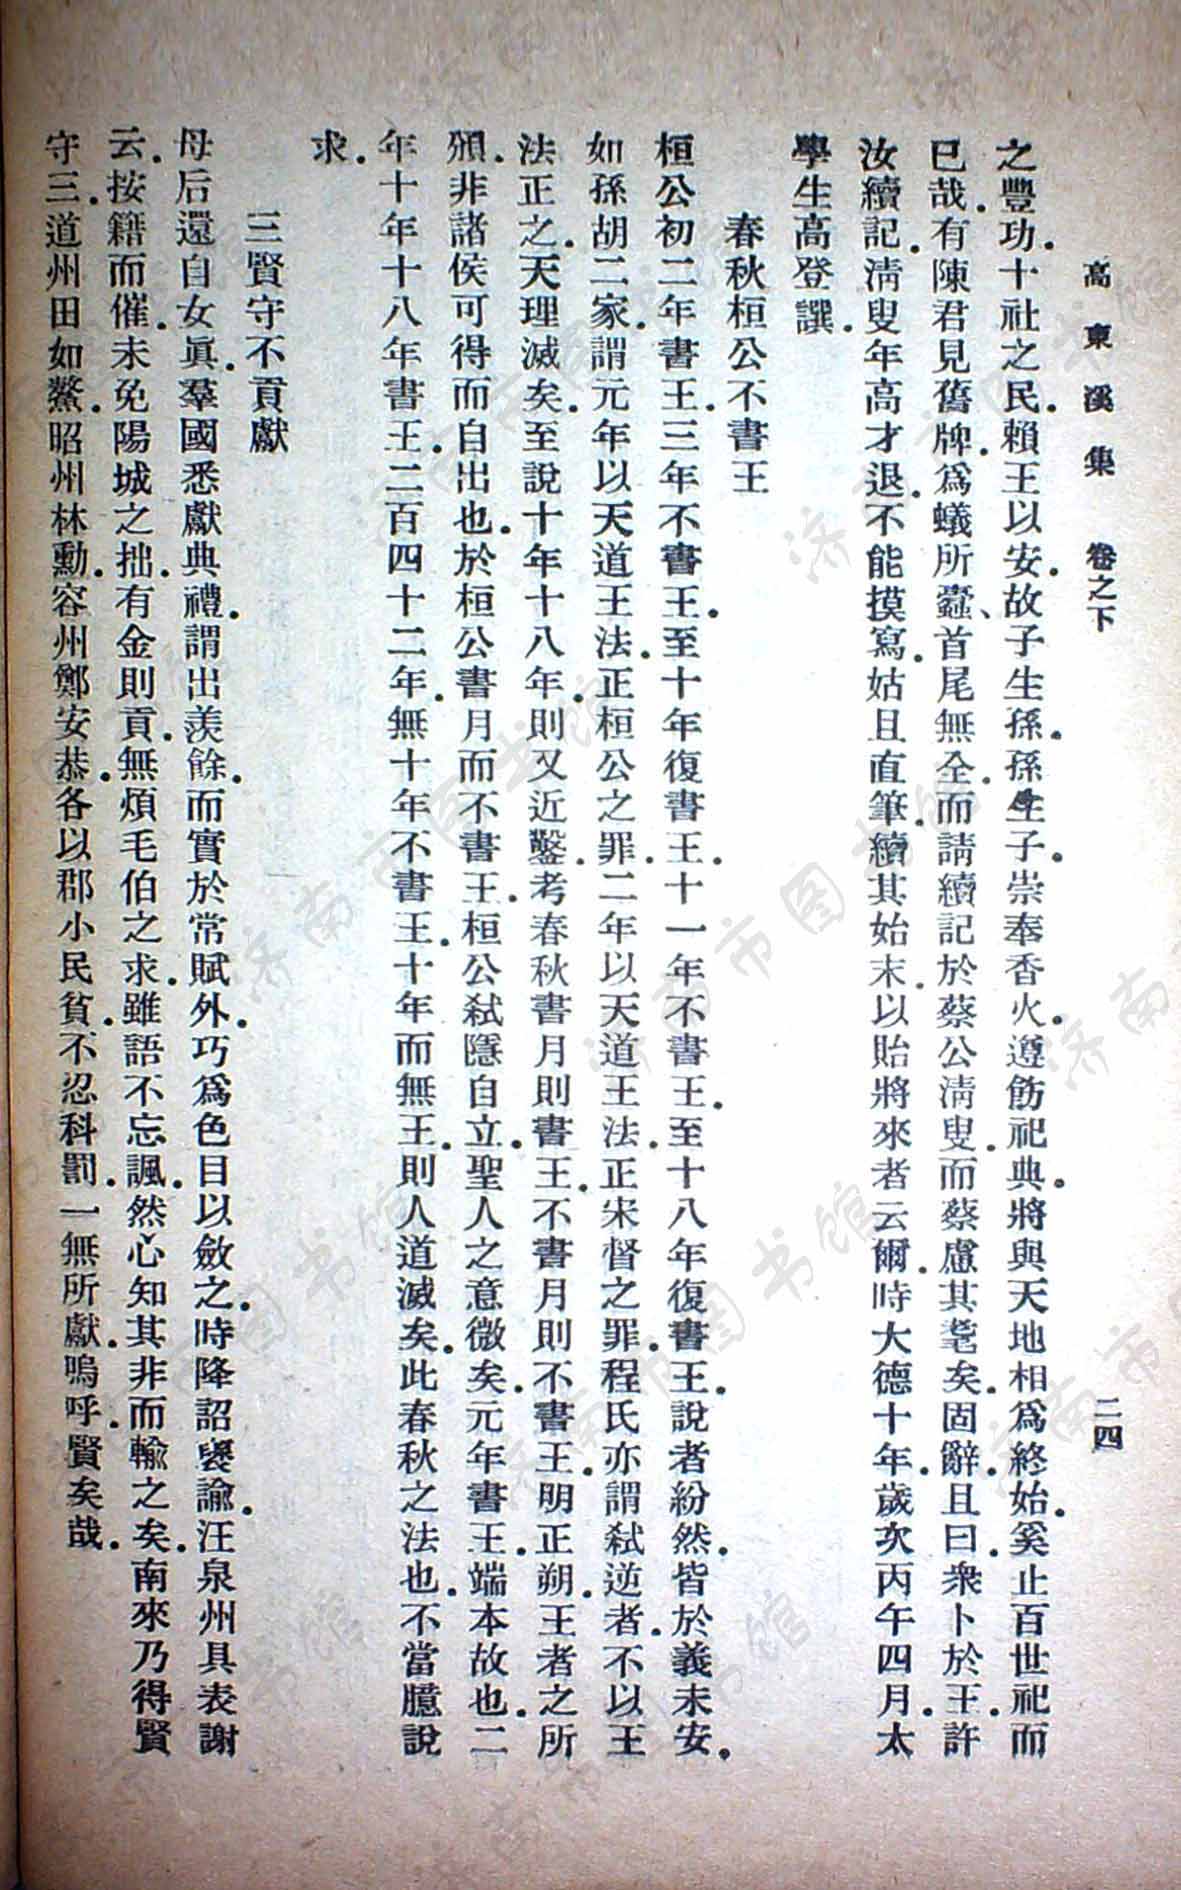 高東溪集 卷之下 二四
之豐功.十社之民.賴王以安.故子生孫.孫生子.崇奉香火.遵飭祀典.將與天地相爲終始.奚止百世祀而
已哉.有陳君見舊牌.爲蟻所蠹、首尾無全.而請續記於蔡公淸叟.而蔡慮其耄矣.固辭.且曰.衆卜於王.許
汝續記.淸叟年高才退.不能摸寫.姑且直筆.續其始末.以貽將來者云爾.時大德十年.歲次丙午四月.太
學生高登譔.
春秋桓公不書王
桓公初二年書王.三年不書王.至十年復書王.十一年不書王.至十八年復書王.說者紛然.皆於義未安.
如孫胡二家.謂元年以天道王法.正桓公之罪.二年以天道王法.正宋督之罪.程氏亦謂弑逆者.不以王
法正之.天理滅矣.至說十年十八年.則又近鑿.考春秋書月則書王.不書月則不書王.明正朔.王者之所
頒.非諸侯可得而自出也.於桓公書月而不書王.桓公弑隱自立.聖人之意微矣.元年書王.端本故也.二
年十年十八年書王.二百四十二年.無十年不書王.十年而無王.則人道滅矣.此春秋之法也.不當臆說
求.
三賢守不貢獻
母后還自女眞.羣國悉獻典禮.謂出羨餘.而實於常賦外.巧爲色目以斂之.時降詔褒諭.汪泉州具表謝
云.按籍而催.未免陽城之拙.有金則貢.無煩毛伯之求.雖語不忘諷.然心知其非而輸之矣.南來乃得賢
守三.道州田如鼇.昭州林勳.容州鄭安恭.各以郡小民貧.不忍科罰.一無所獻.嗚呼.賢矣哉.
济南市图书馆